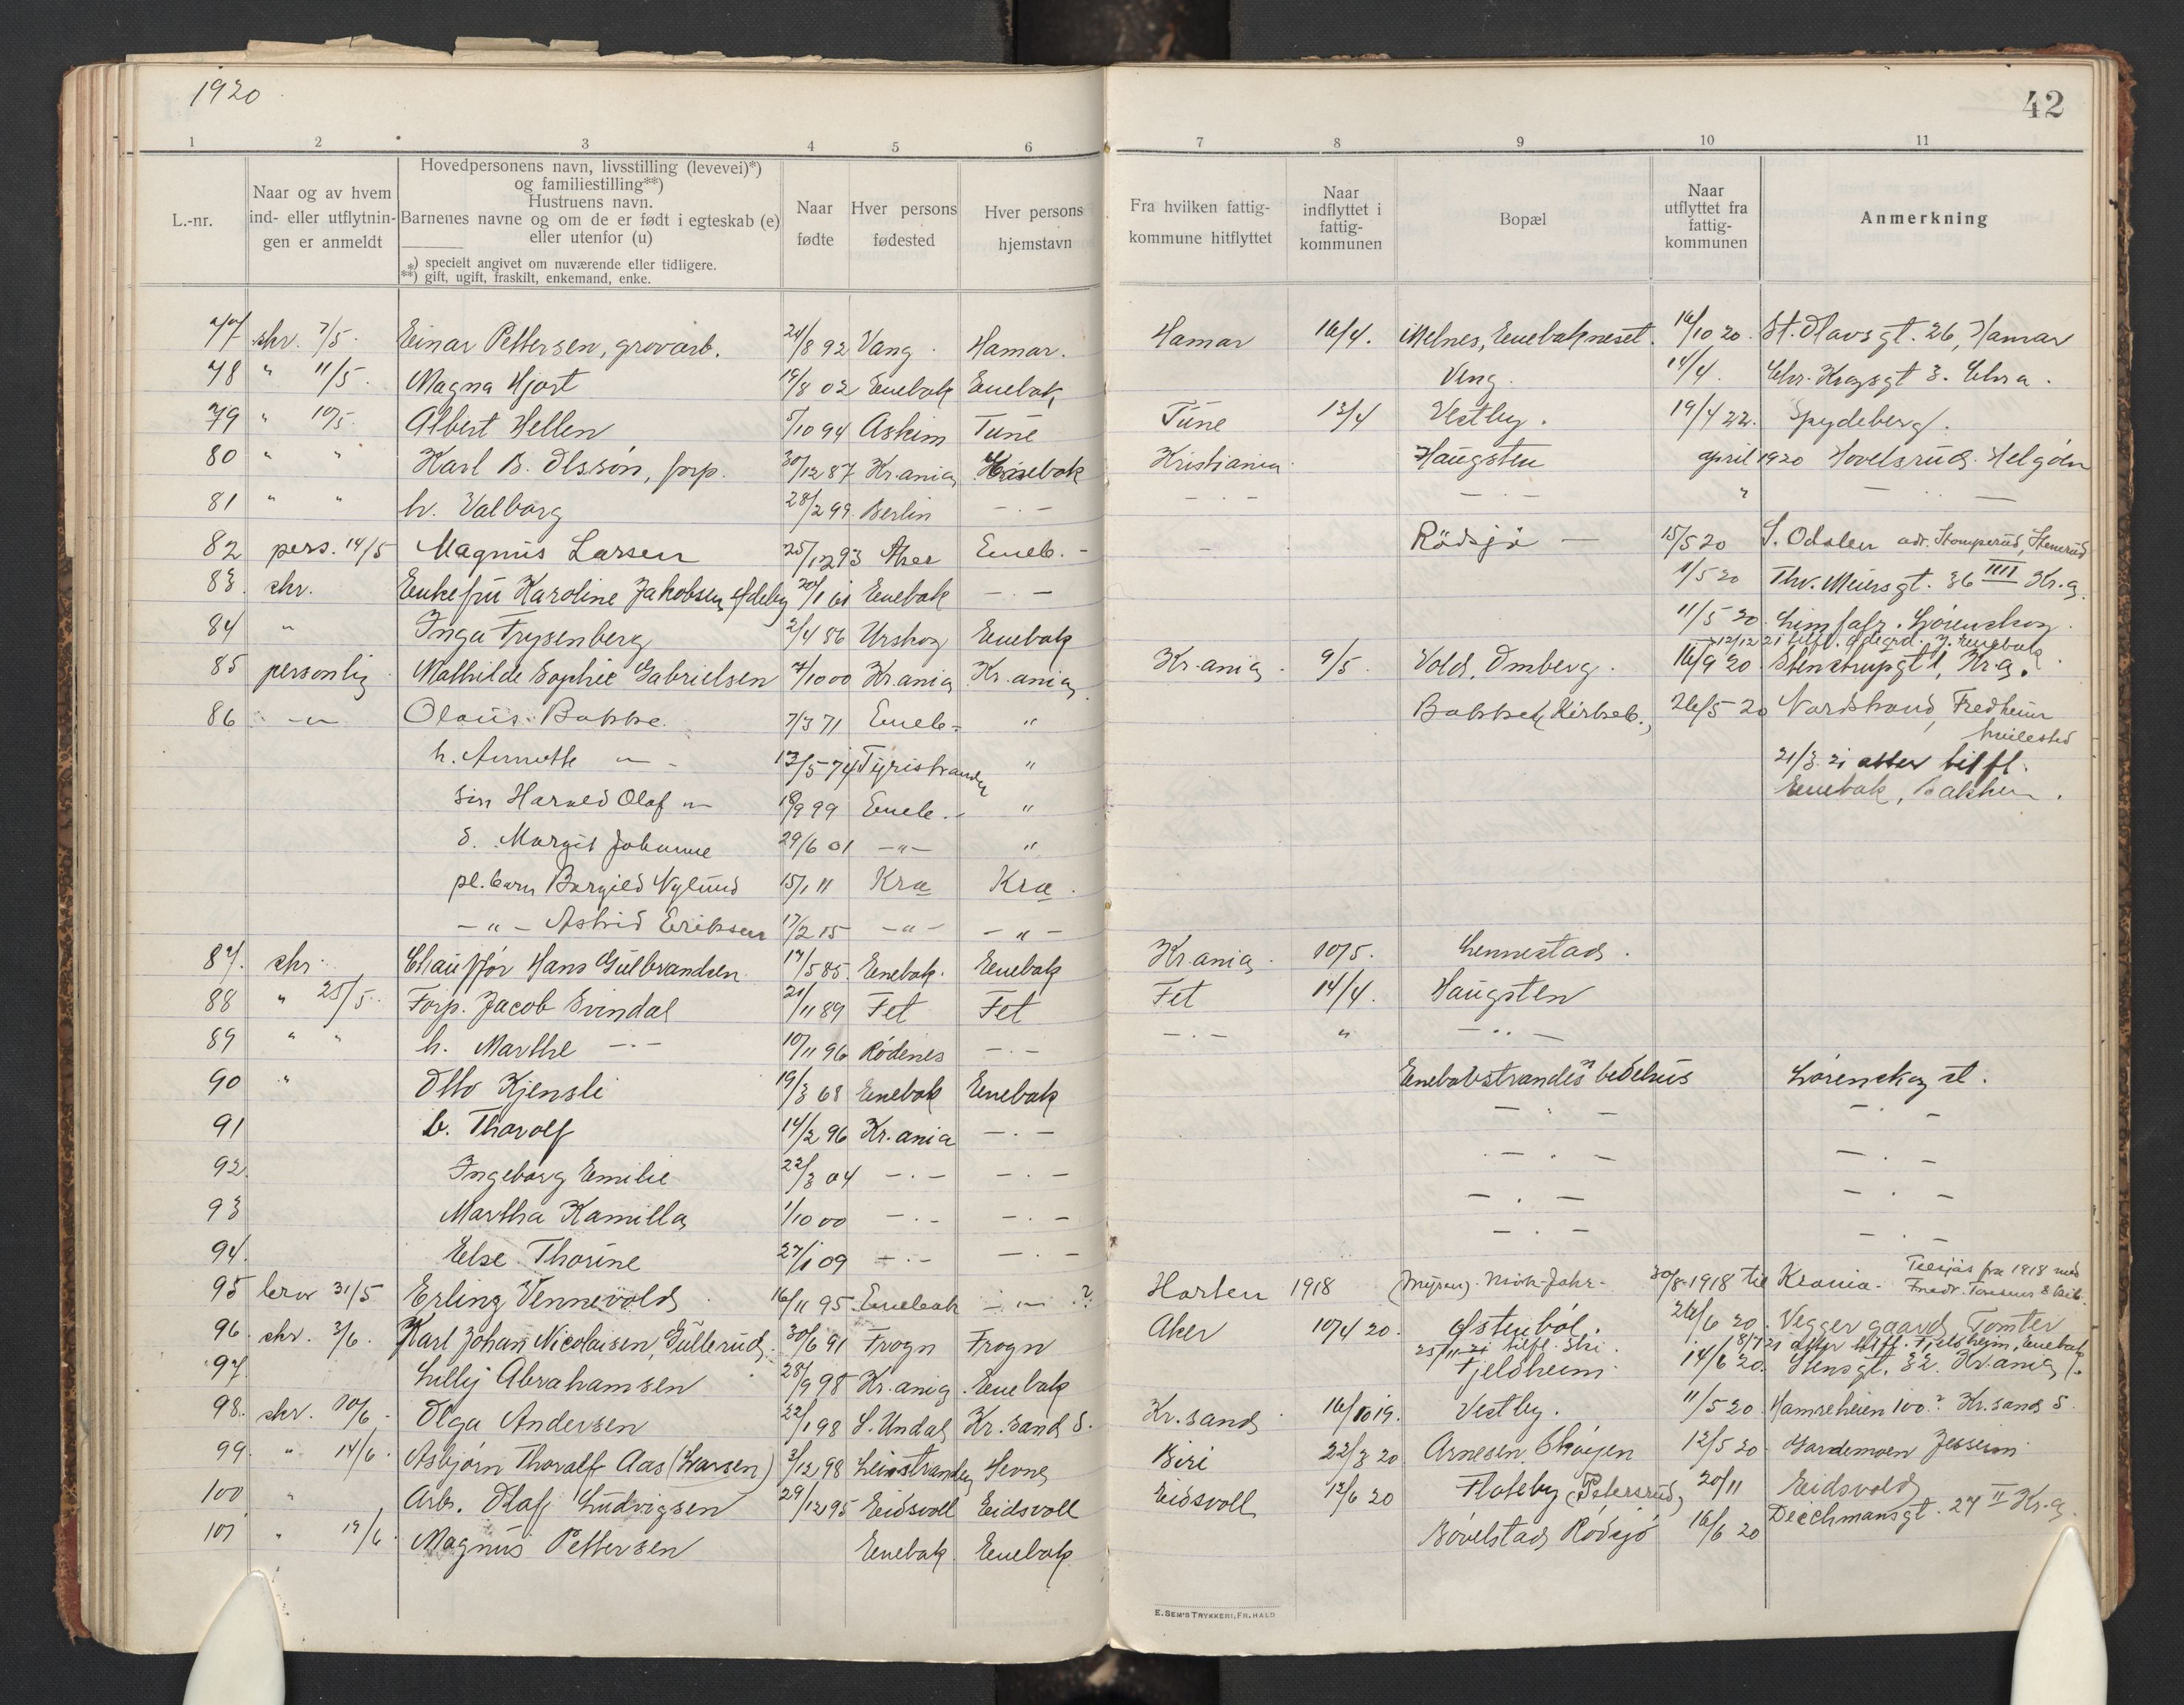 1920
42
1 2 3 4 5 6 7 8 9 10 11
L.-nr.
Naar og av hvem
ind- eller utflytnin-
gen er anmeldt
Hovedpersonens navn, livsstilling (levevei)*)
og familiestilling**)
Hustruens navn.
Barnenes navne og om de er født i egteskab (e)
eller utenfor (u)
*) specielt angivet om nuværende eller tidligere.
**) gift, ugift, fraskilt, enkemand, enke.
Naar
fødte
Hver persons
fødested
Hver persons
hjemstavn
Fra hvilken fattig-
kommune hitflyttet
Naar
indflyttet i
fattig-
kommunen
Bopæl
Naar
utflyttet fra
fattig-
kommunen
Anmerkning
77 skr. 7/5. Einar Pettersen, grovarb. 24/8 92 Vang. Hamar. Hamar 16/4. Melnes, Enebakneset. 16/10 20. St. Olavsgt. 26, Hamar
78 " 11/5. Magna Hjort 19/8 02 Enebak Enebak Ving. 14/4. Chr. Krogsgt 3. Chra.
79 " 10/5. Albert Hellen 5/10 94 Askim Tune Tune 13/4 Vestby. 19/4 22. Spydeberg.
80 " " Karl B. Olssøn, forp. 30/12 87 Kr.ania Enebak Kristiania Haugsten april 1920 Hovelsrud. Helgøen
81 " " h. Valborg 28/2 99. Berlin - . - - . - - . - " — —
82 pers. 14/5 Magnus Larsen 25/12 93 Aker Eneb. - - Rødsjø — 15/5 20 S. Odalen adr. Stomperud, Stenrud
83. skr. Enkefru Karoline Jakobsen, Ødeby 20/1 61 Enebak - . - 1/5 20 Thv. Meiersgt. 36 IIII Kr.a.
84 " Inga Frysenberg 2/4 86 Urskog Enebak 11/5 20. Limfabr. Lørenskog.
12/12 21 tilfl. Ødegrd. Y. Enebak
85 personlig Mathilde Sophie Gabrielsen 7/10 00 Kr.ania Kr.ania. Kr.ania. 9/5. Vold, Omberg. 16/9 20 Stenstrupgt 1, Kr.a.
86 -"- Olaus Bakke. 7/3 71 Eneb- " Bakke, Kirkeb., 26/5 20 Nordstrand, Fredheim
hvilested
h. Annette -"- 13/5 74 Tyristranden " 21/3 21 atter tilfl.
søn Harald Olaf -"- 18/9 99 Eneb.- " Enebak, Bakken.
d. Margit Johanne 29/6 01 -"- "
pl. barn Borgild Nylund 15/1 11 Kra Kra.
-"- Astrid Eriksen 17/2 15 -"- -"-
87. skr. Chauffør Hans Gulbrandsen 17/5 85. Enebak. Enebak Kr.ania. 10/5. Lennestad.
88 " 25/5. Forp. Jacob Svindal 21/11 89 Fet Fet Fet 14/4. Haugsten
89 " " h. Marthe -.- 10/11 96 Rødenes - . - - . - " - . . -
90 " Otto Kjensli 19/3 68 Enebak Enebak Enebakstrandens bedehus Lørenskog st.
91 b. Thorolf 14/2 96 Kr.ania - . - - . - - . -
92. Ingeborg Emilie 22/3 04 - . - - . - - . - - . -
93 Martha Kamilla 1/10 00 - . - - . - - . - - . -
94. Else Thorine 27/1 09 - . - - . - - . - - . -
95 brev 31/5 Erling Vennevold 16/11 95. Enebak -"- ? Horten 1918 (Myren). 30/8-1918 til Krania. Tilsjås fra 1918 med
96. skr. 3/6. Karl Johan Nicolaisen, Gullerud. 30/6 91 Frogn Frogn Aker 10/4 20. Østenbøl. 26/6 20. Vegger gaard, Tomter
25/11 21 tilfl. Ski. 8/7 21 atter tilfl. Fjeldheim, Enebak
97. Lilly Abrahamsen 28/9 98 Kr.ania. Enebak Fjeldheim. 14/6 20. Stensgt. 32. Kr.ania
98. skr. 10/6. Olga Andersen 22/1 98 S. Undal Kr.sand S. Kr.sand 16/10 19. Vestby. 11/5 20. Hamreheien 100.? Kr.sand S.
99. " 14/6. Asbjørn Thoralf Aas (Larsen) 3/12 98 Leinstranden Hevne Biri 22/3 20 Arnesen, Skøien 12/5 20. Gardemoen Jessum
100 " Arb. Olaf Ludvigsen 29/12 95 Eidsvoll Eidsvoll Eidsvoll 12/6 20 Flateby (Petersrud) 20/11 Eidsvold
101 " 19/6. Magnus Pettersen Enebak. Enebak Bøvelstad, Rødsjø 16/6 20 Deichmansgt. 27 II Kr.a.
E. SEM'S TRYKKERI, FR.HALD